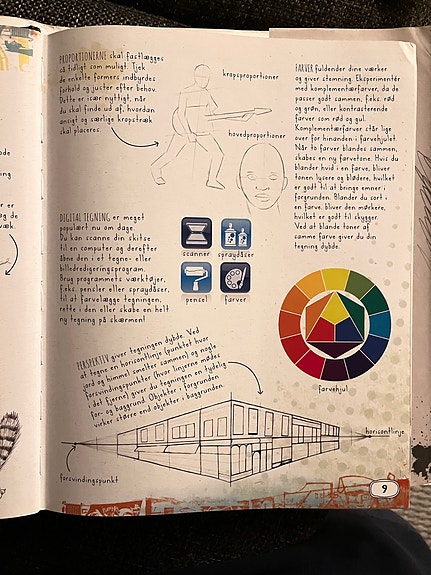 PROPORTIONERNE skal fastlægges
så tidligt som muligt. Tjek
de enkelte formers indbyrdes
forhold og juster efter behov.
Dette er især nyttigt, når
du skal finde ud af, hvordan
ansigt og særlige kropstræk
skal placeres.
kropsproportioner
hovedproportioner
FARVER fuldender dine værker
og giver stemning. Eksperimentér
med komplementærfarver, da de
passer godt sammen, f.eks. rød
og grøn, eller kontrasterende
farver som rød og gul.
Komplementærfarver står lige
over for hinanden i farvehjulet.
Når to farver blandes sammen,
skabes en ny farvetone. Hvis du
blander hvid i en farve, bliver
tonen lysere og blødere, hvilket
er godt til at bringe emner i
forgrunden. Blander du sort i
en farve, bliver den mørkere,
hvilket er godt til skygger.
Ved at blande toner af
samme farve giver du din
tegning dybde.
DIGITAL TEGNING er meget
populært nu om dage.
Du kan scanne din skitse
til en computer og derefter
åbne den i et tegne- eller
billedredigeringsprogram.
Brug programmets værktøjer,
f.eks. pensler eller spraydåser,
til at farvelægge tegningen,
rette i den eller skabe en helt
ny tegning på skærmen!
scanner
spraydåser
pensel
farver
farvehjul
PERSPEKTIV giver tegningen dybde. Ved
at tegne en horisontlinje (punktet hvor
jord og himmel smelter sammen) og nogle
forsvindingspunkter (hvor linjerne mødes
i det fjerne) giver du tegningen en tydelig
for- og baggrund. Objekter i forgrunden
virker større end objekter i baggrunden.
horisontlinje
forsvindingspunkt
9